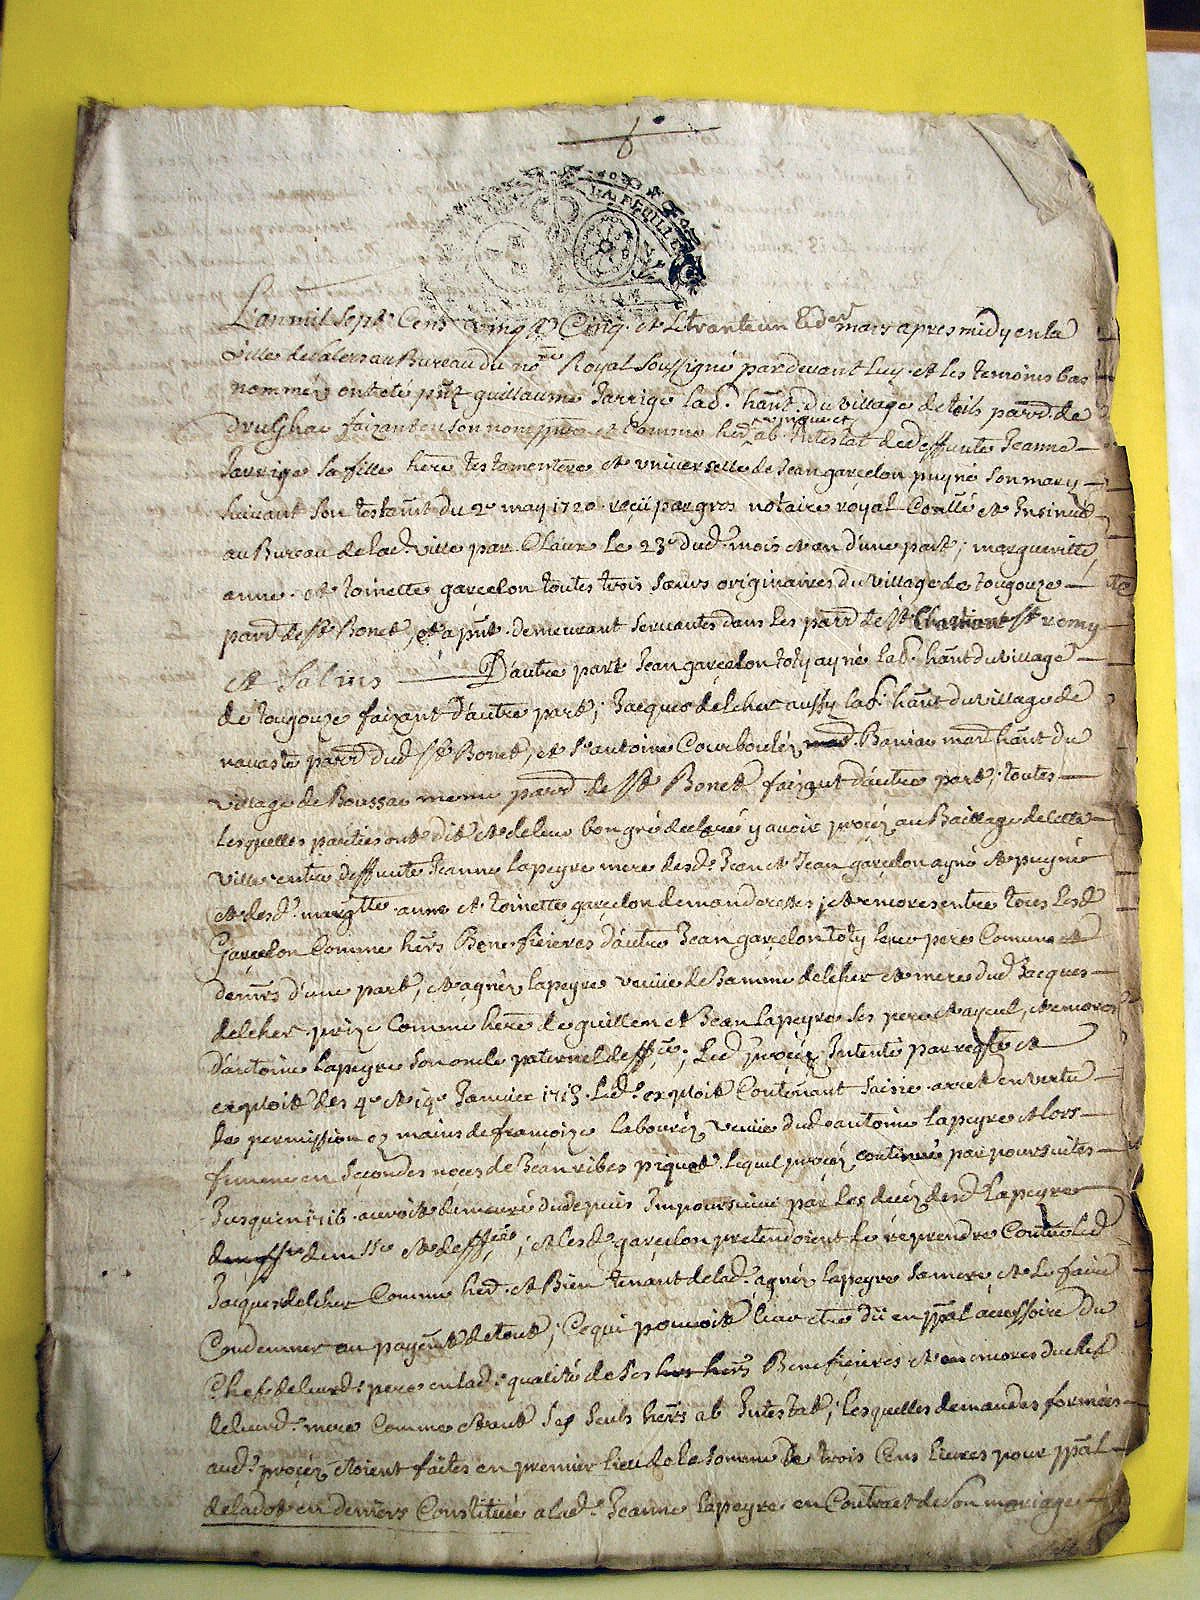 6
LA FEUILLE
L'an mil sept Cens vingt Cinq et le trante un & der mars apres midy en la
ville de Salers au Bureau du nore Royal Soussigné pardevant Luy et les temoins bas
nommés ont eté pnt guillaume Jarrige lab. hant. du village de parr. de
Drughac faizant en son nom et Comme her. ab Intestat de deffunte Jeanne
Jarrige sa fille here testamentere et universelle de Jean garcelon puyné son mary
suivant son testamt du 2e may 1720 reçü par gros notaire royal Conllé et Insinué
au Bureau de lad. ville par Claux le 23e dud. mois et an d'une part; margueritte
anne et toinette garçelon toutes trois sœurs originaires du village de tougouze
parr. de st Bonet, et a pnt demeurant servantes dans les parr. de st Chamant st remy
et Salins D'autre part Jean garçelon toty ayné lab. hant du village
de tougouze faizant d'autre part; Jacques delcher aussy lab. hant du village de
navaste parr. dud. st Bonet, et sr antoine Courboulés Baniac mard hant du
village de Boussac meme parr. de st Bonet faizant d'autre part; toutes
Lesquelles parties ont dit et de leur bon gré declaré y avoir proçés au Baillage de cette
ville entre deffunte Jeanne Lapeyre mere desd. Jean et Jean garçelon ayné et puyné
et desd. margtte anne et toinette garçelon demanderesses; et encores entre toces Lesd.
Garcelon Comme hers Benefiçieres d'autre Jean garçelon toty leur pere Comune et
demrs d'une part, et agnés lapeyre veuüe de Bamme delcher et mere dud. Jacques
delcher prize Comme here de guillem et Jean Lapeyre ses pere et ayeul, et encores
d'antoine Lapeyre son oncle paternel deffse; Led. proçés Intenté par reqte et
exploit des 4e et 19e Janvier 1715 Led. exploit Contenant Saisie arrest en vertu
de permission ez mains de françoize Labourés veuüe dud. antoine Lapeyre et lors
femme en secondes noçes de Jean ribes piquet Lequel proçés continué par poursuites
Jusqu'en 1716 auroit demeuré du depuis Impoursuivi par les deçés desd. Lapeyre
demsse et deffse; et lesd. garçelon pretendoient le reprendre Contre Led.
Jacques delcher Comme her. et Bien tenant de lad. agnés Lapeyre sa mere et le faire
Condemner au payemt de tout; Ce qui pouvoit leur etre dü en ppal accessoire du
Chef de leurd. pere en lad. qualité de ses hers Benefiçieres et encores du chef
de leurd. mere Comme etant ses seuls hers ab Intestat; lesquelles demandes formées
aud. proçés etoient faites en premier lieu de la somme de trois Cens Livres pour ppal
de la dot en deniers Constituée a lad. Jeanne Lapeyre en Contract de son mariage